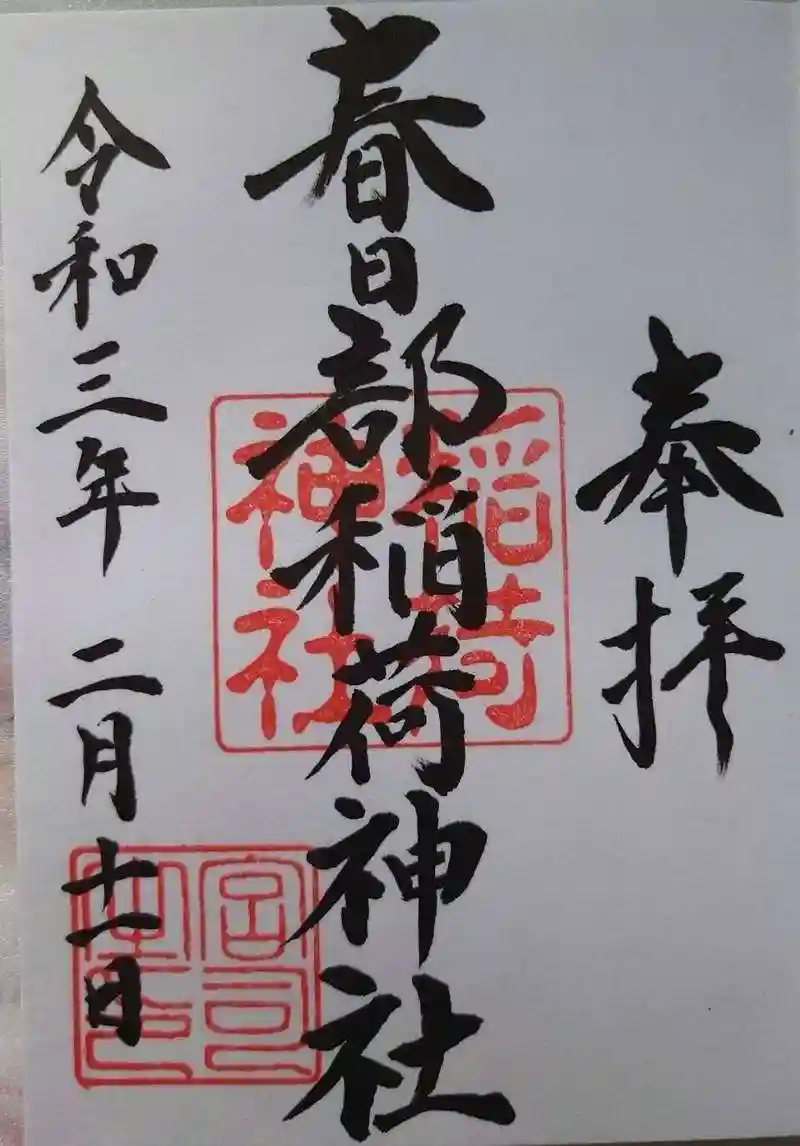 奉拝
春日部稲荷神社
令和三年 二月十一日
稲荷
神社
宮司
之印